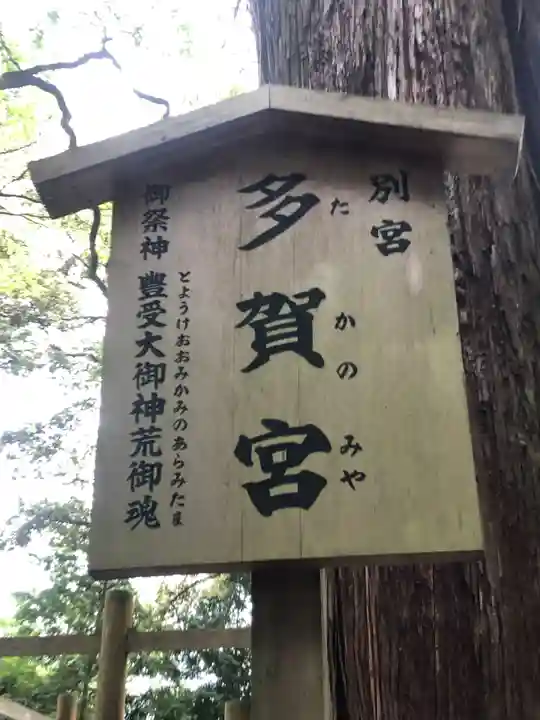 別宮
多賀宮
たかのみや
御祭神 豊受大御神荒御魂
とようけおおみかみのあらみたま